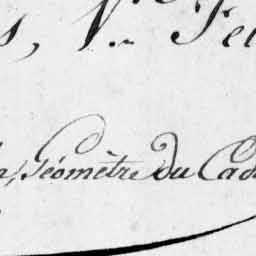 s, V.e Fe
n, Géomètre du Cad